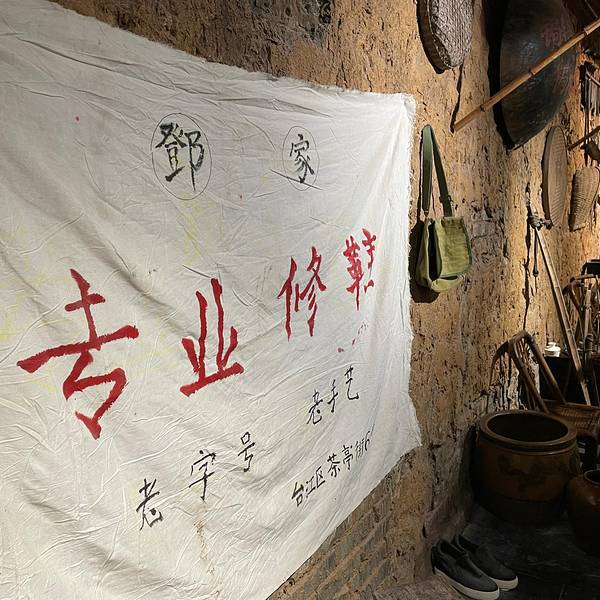 鄧家
专业修鞋
老字号 老手艺
台江区茶亭街6